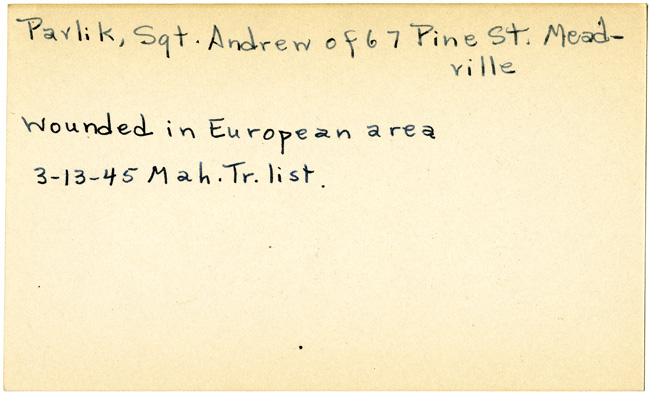 Pavlik, Sgt. Andrew of 67 Pine St. Mead-
ville
wounded in European area
3-13-45 Mah. Tr. list.